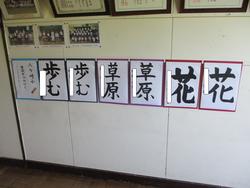 歩む
歩む
草原
草原
花
花